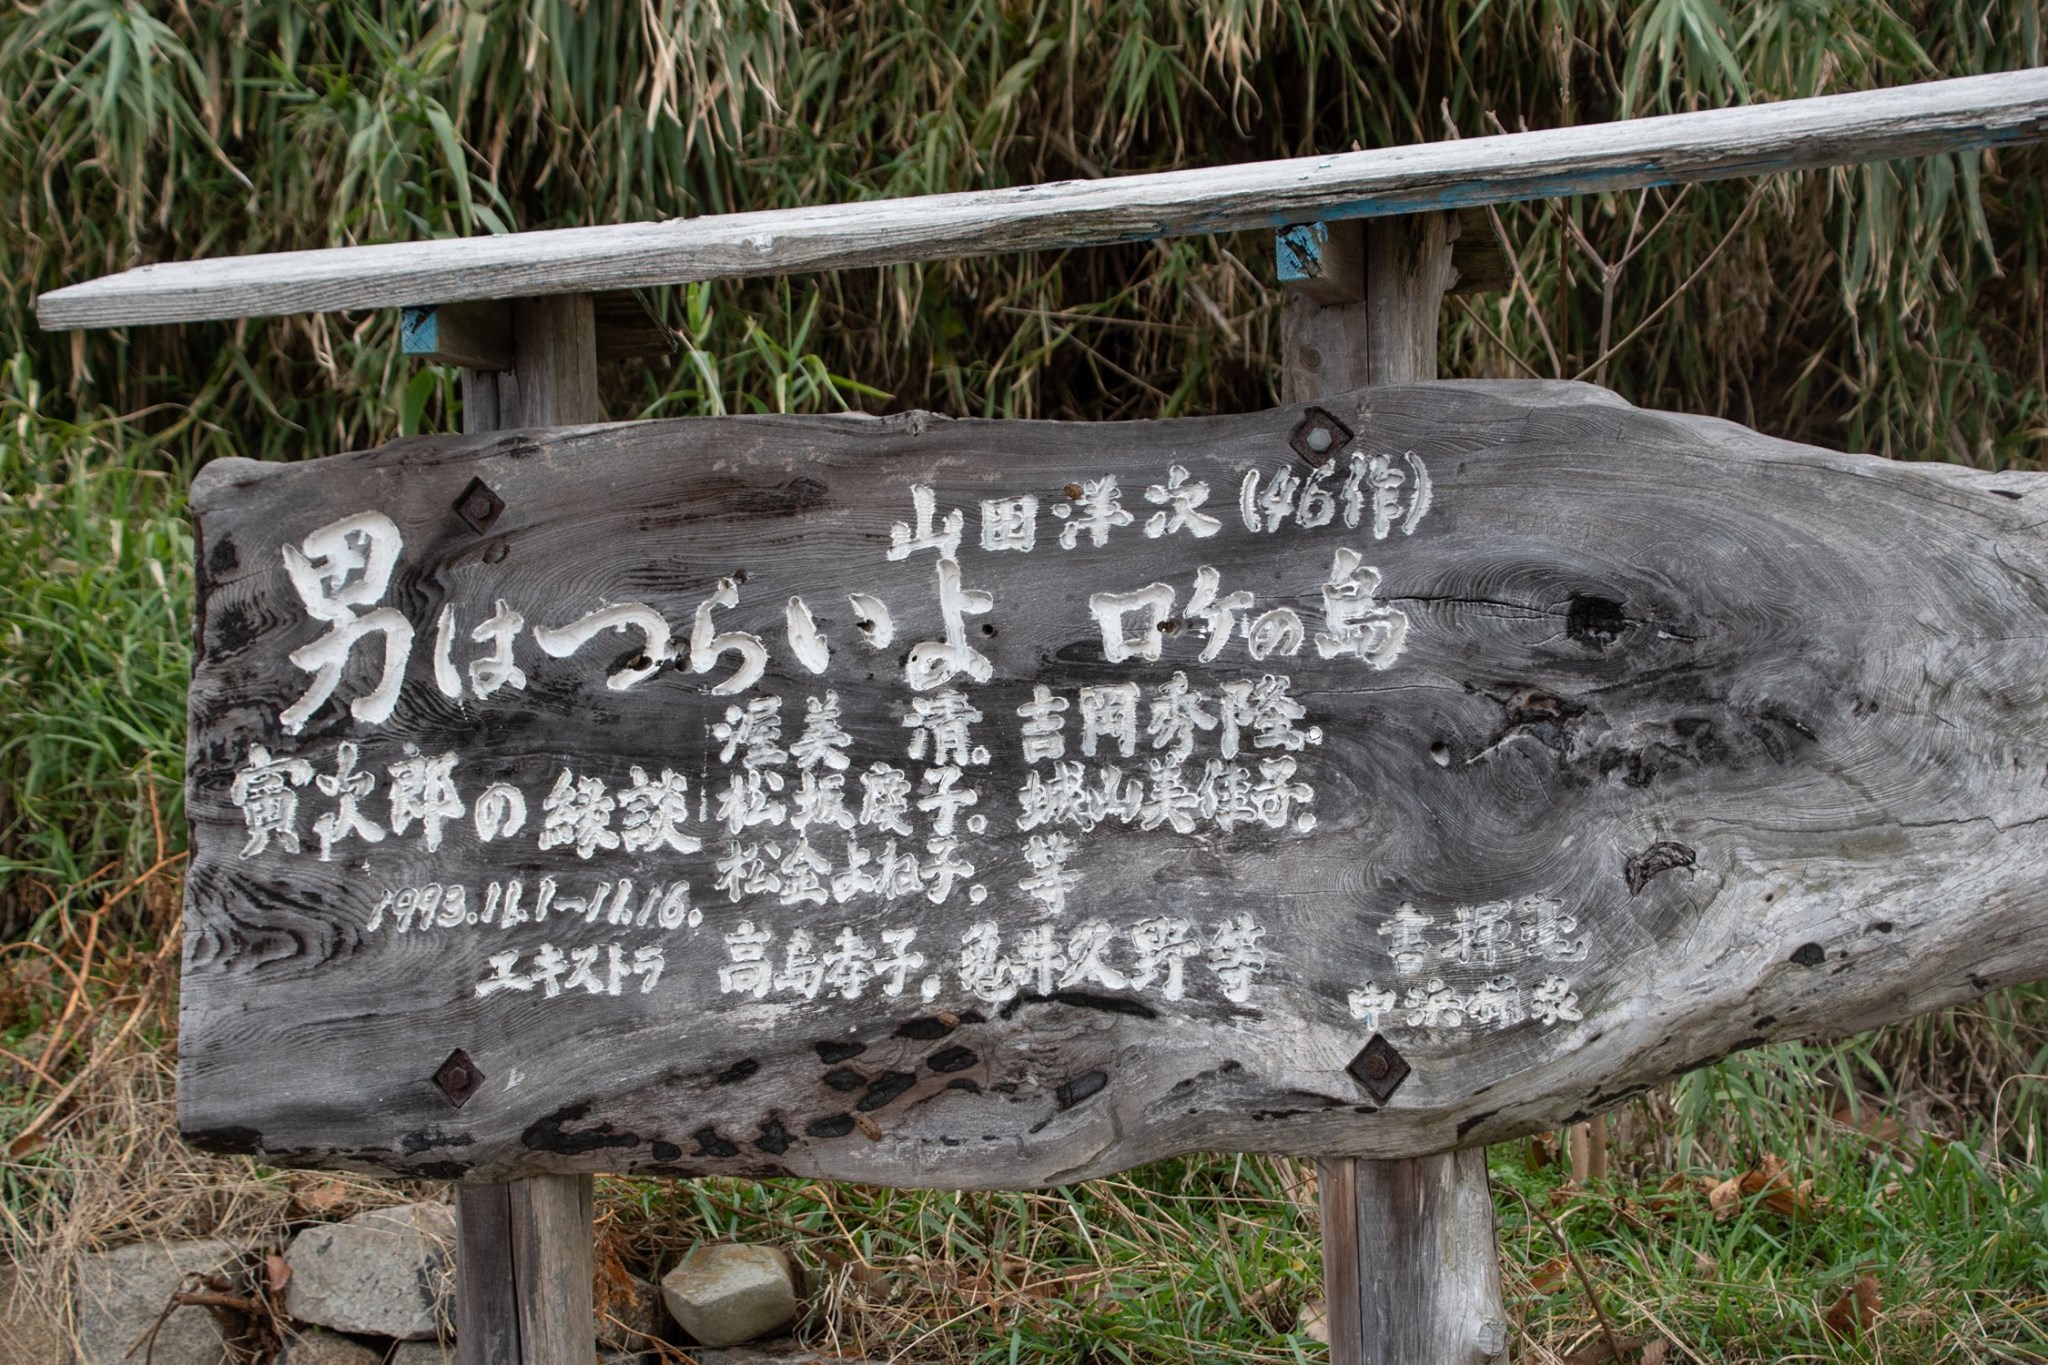 山田洋次(46作)
男はつらいよ ロケの島
寅次郎の縁談
渥美 清。吉岡秀隆.
松坂慶子.城山美佳子.
松金よね子.等
1993.11.1~11.16.
エキストラ 高島孝子.亀井久野等
書揮毫
中浜